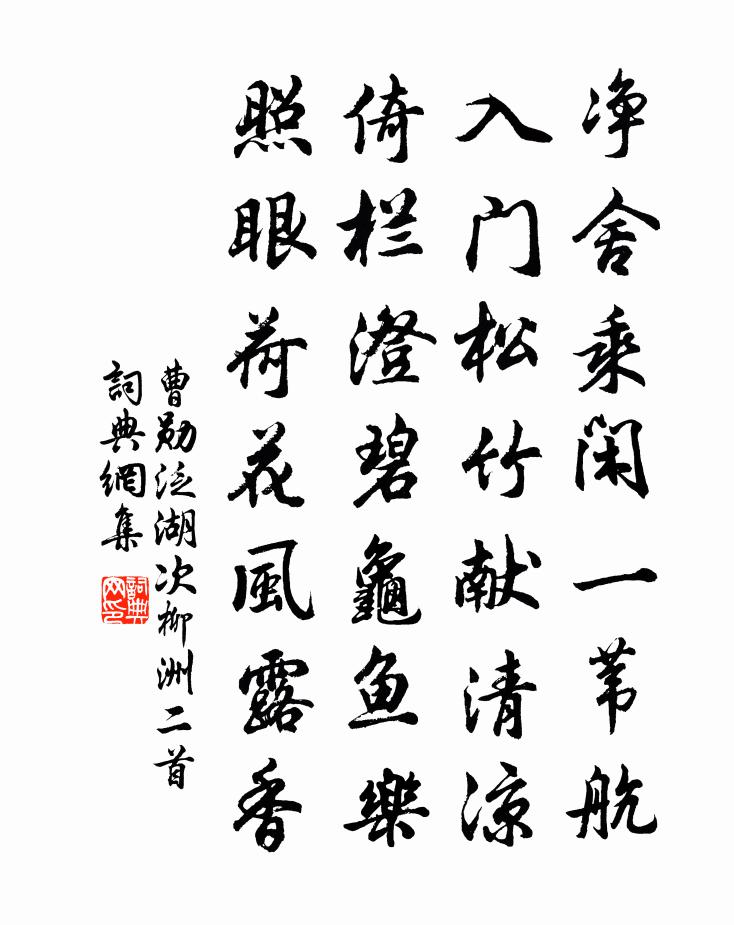 净舍乘闲一苇航
入门松竹献清凉
倚栏澄碧龜鱼樂
照眼荷花風露香
曹勋泛湖次柳洲二首
詞典網集
詞典网印